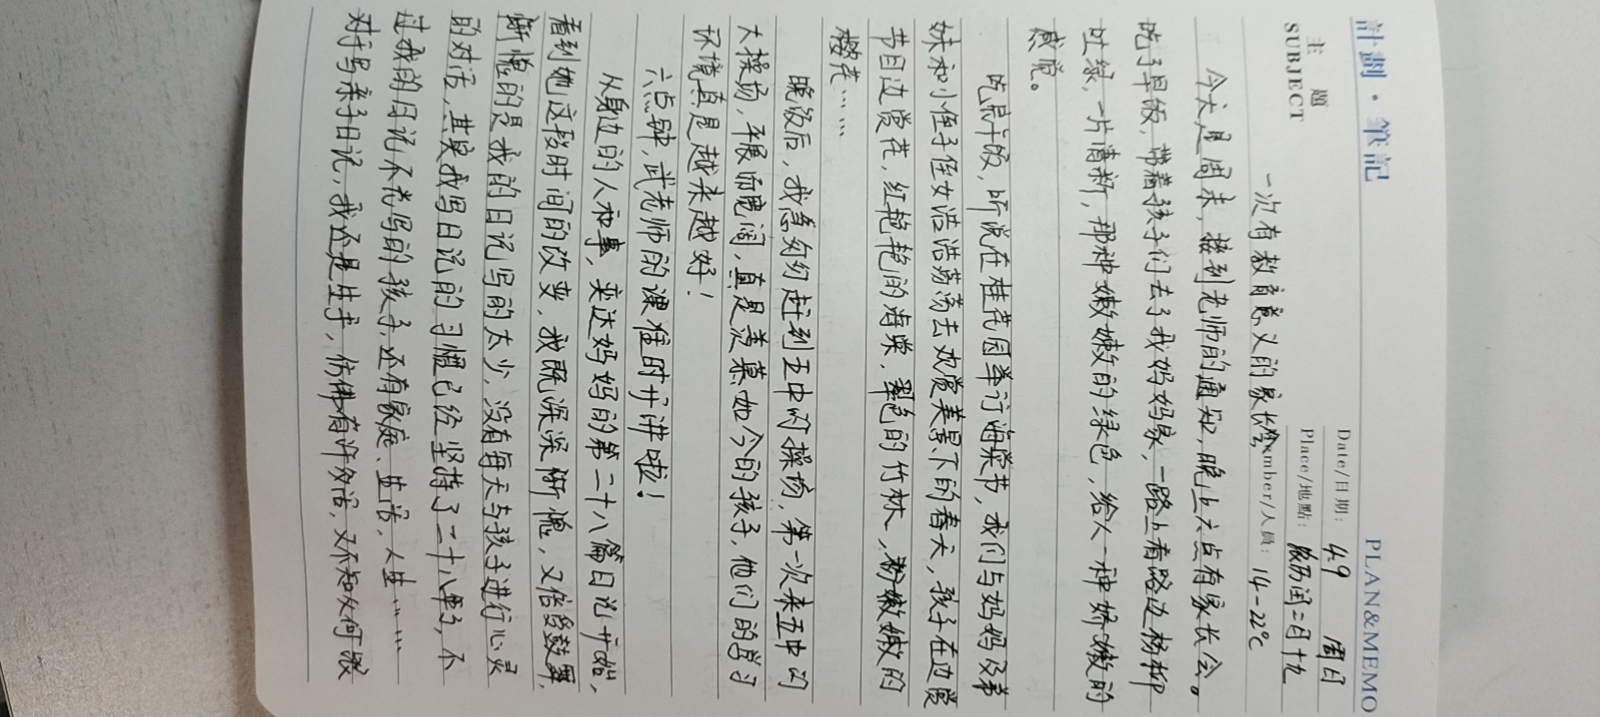 計劃·筆記 PLAN&MEMO
主題 SUBJECT
Date/日期: 4.9 周日
Place/地點: 农历闰二月十九
一次有教育意义的家长会 Number/人員: 14-22℃
今天是周末,接到老师的通知,晚上六点有家长会。
吃了早饭,带着孩子们去了我妈妈家,一路上看路边杨柳
吐绿,一片清新,那种嫩嫩的绿色,给人一种娇嫩的
感觉。
吃晨午饭,听说在桂花园举行海棠节,我们与妈妈及弟
妹和小侄子侄女浩浩荡荡去欢赏美景下的春天,孩子在边赏
节目边赏花,红艳艳的海棠,翠色的竹林,粉嫩嫩的
樱花……
晚饭后,我急匆匆赶到五中的操场,第一次来五中的
大操场,平展而宽阔,真是羡慕如今的孩子,他们的学习
环境真是越来越好!
六点钟,武老师的课准时开讲啦!
从身边的人和事,奕达妈妈的第二十八篇日记开始,
看到她这段时间的改变,我既深深惭愧,又倍受鼓舞,
惭愧的是我的日记写的太少,没有每天与孩子进行心灵
的对话,其实我写日记的习惯已经坚持了二十八年了,不
过我的日记不光写的孩子,还有家庭、生活,人生……
对于写亲子日记,我还是生手,仿佛有许多话,又不知如何说